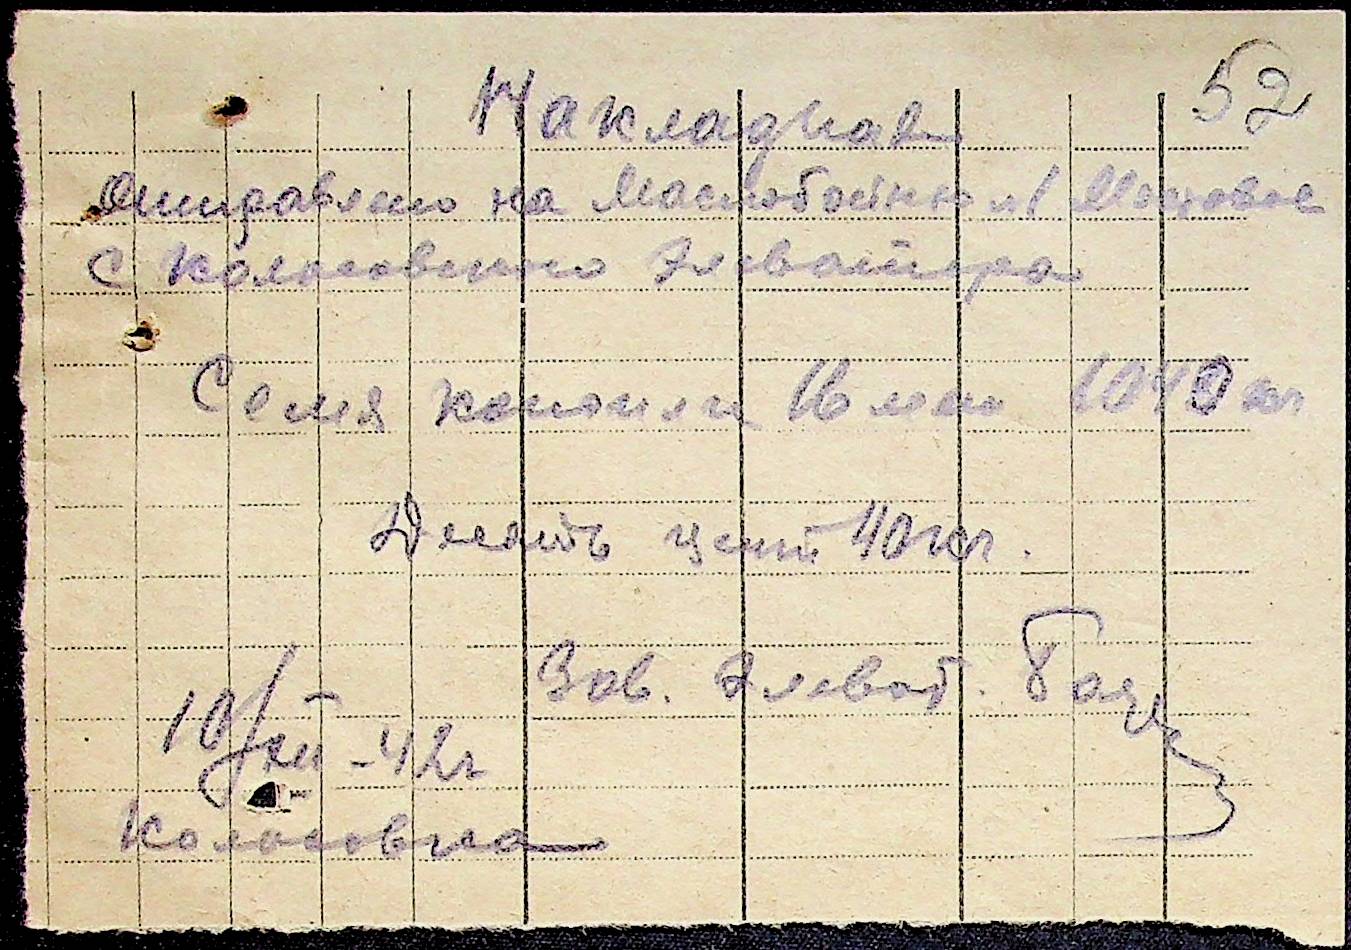 52
Накладная
Отправлено на Маслобойню м/ Мостовое
с Колосовского Элеватора
Семя конопли 16 меш 1040 кг
Десять цент 40 кг.
Зав. Элеват.
10/XII-42г
Колосовка